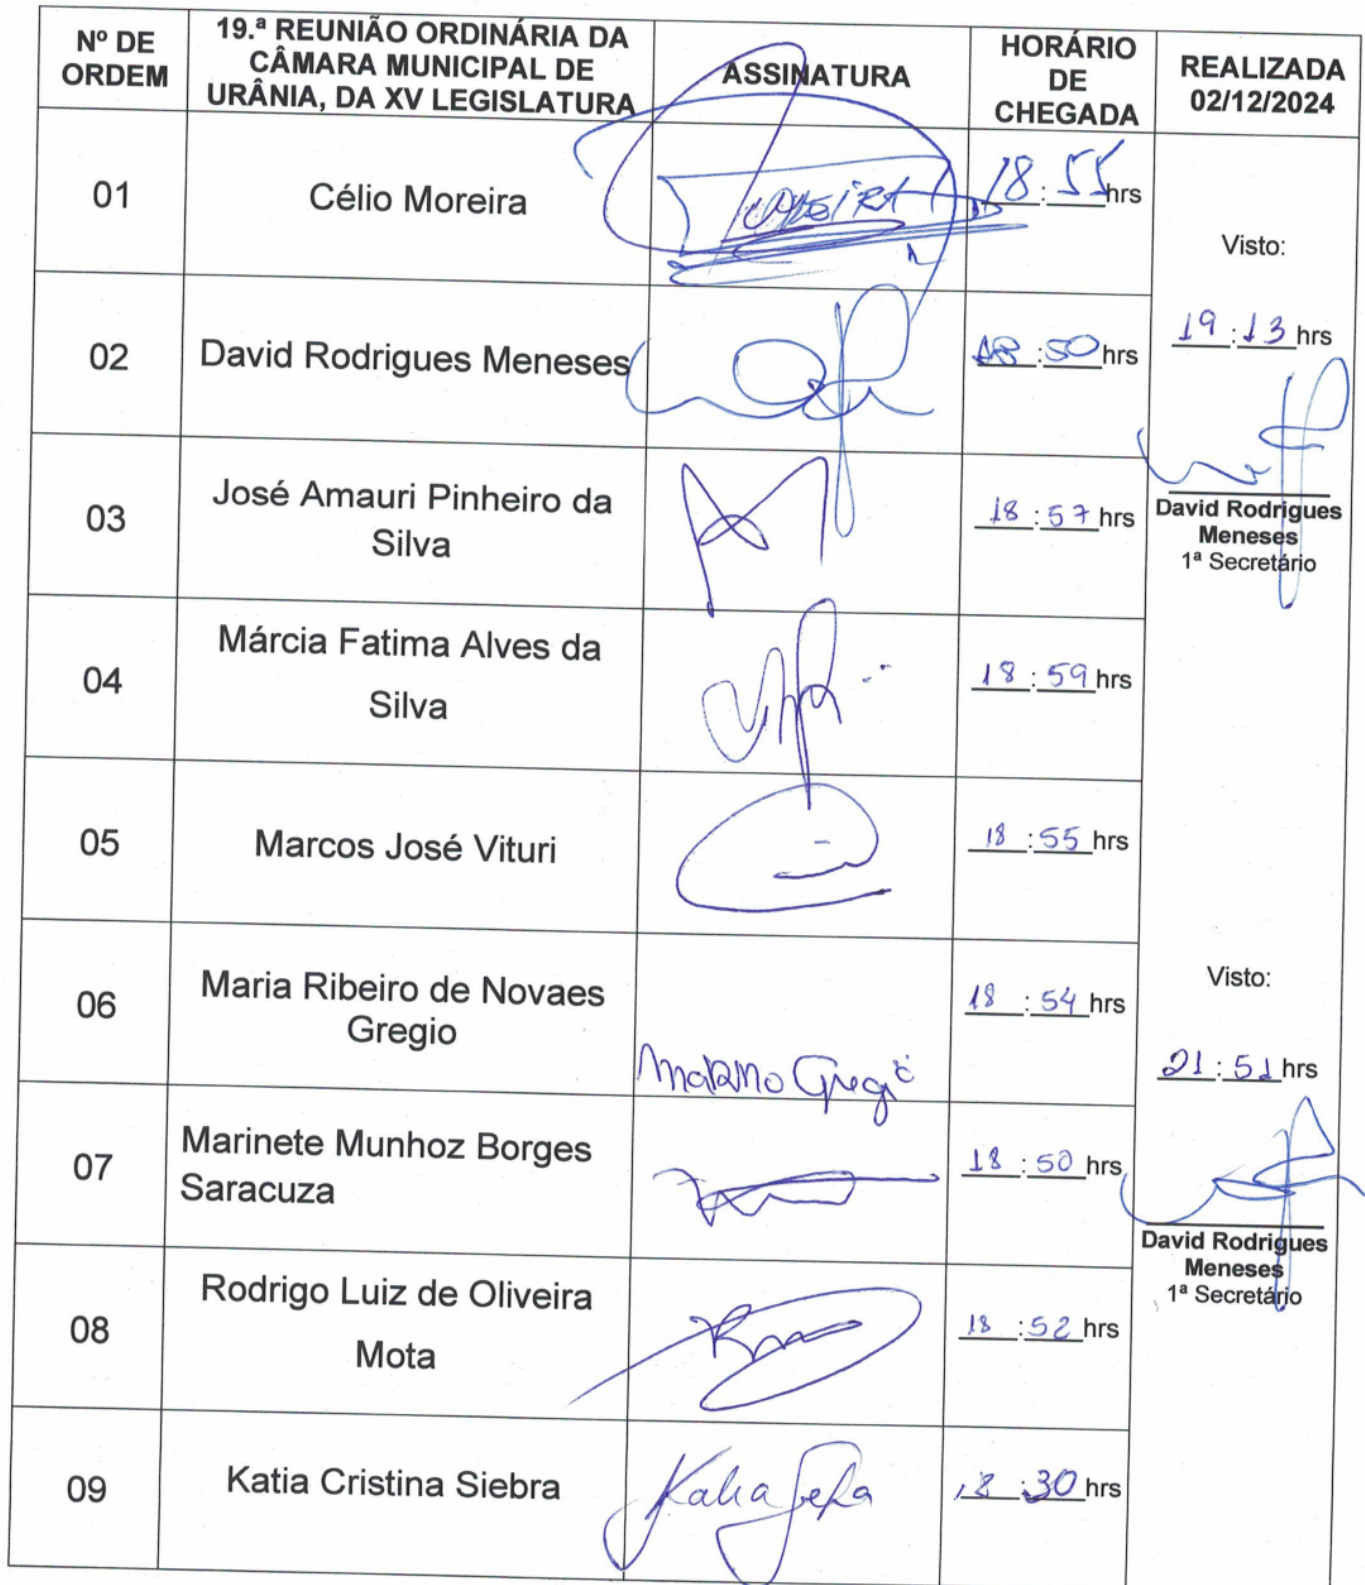 Nº DE
ORDEM
19.ª REUNIÃO ORDINÁRIA DA
CÂMARA MUNICIPAL DE
URÂNIA, DA XV LEGISLATURA
ASSINATURA
HORÁRIO
DE
CHEGADA
REALIZADA
02/12/2024
01
Célio Moreira
18:55 hrs
Visto:
19:13 hrs
David Rodrigues
Meneses
1ª Secretário
02
David Rodrigues Meneses
18:50 hrs
03
José Amauri Pinheiro da
Silva
18:57 hrs
04
Márcia Fatima Alves da
Silva
18:59 hrs
05
Marcos José Vituri
18:55 hrs
06
Maria Ribeiro de Novaes
Gregio
18:54 hrs
Visto:
21:51 hrs
David Rodrigues
Meneses
1ª Secretário
07
Marinete Munhoz Borges
Saracuza
18:50 hrs
08
Rodrigo Luiz de Oliveira
Mota
18:52 hrs
09
Katia Cristina Siebra
18:30 hrs